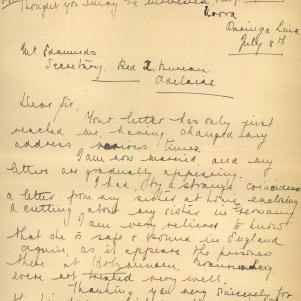 thought you may be interested
Rosra
July 8th
Mr Edmunds.
Secretary. Red X Bureau
Adelaide
Dear Sir.
Your letter has only just
reached me, having changed my
address various times.
I am now married, and my
letters are gradually appearing.
I had, by a strange coincidence
a letter from my sister at home, enclosing
a cutting about my sister in Germany
I am very relieved to know
that she is safe & sound in England
again, as it appears the prisoners
there at Holzminden, Braunschweig
were not treated very well.
Thanking you very sincerely for